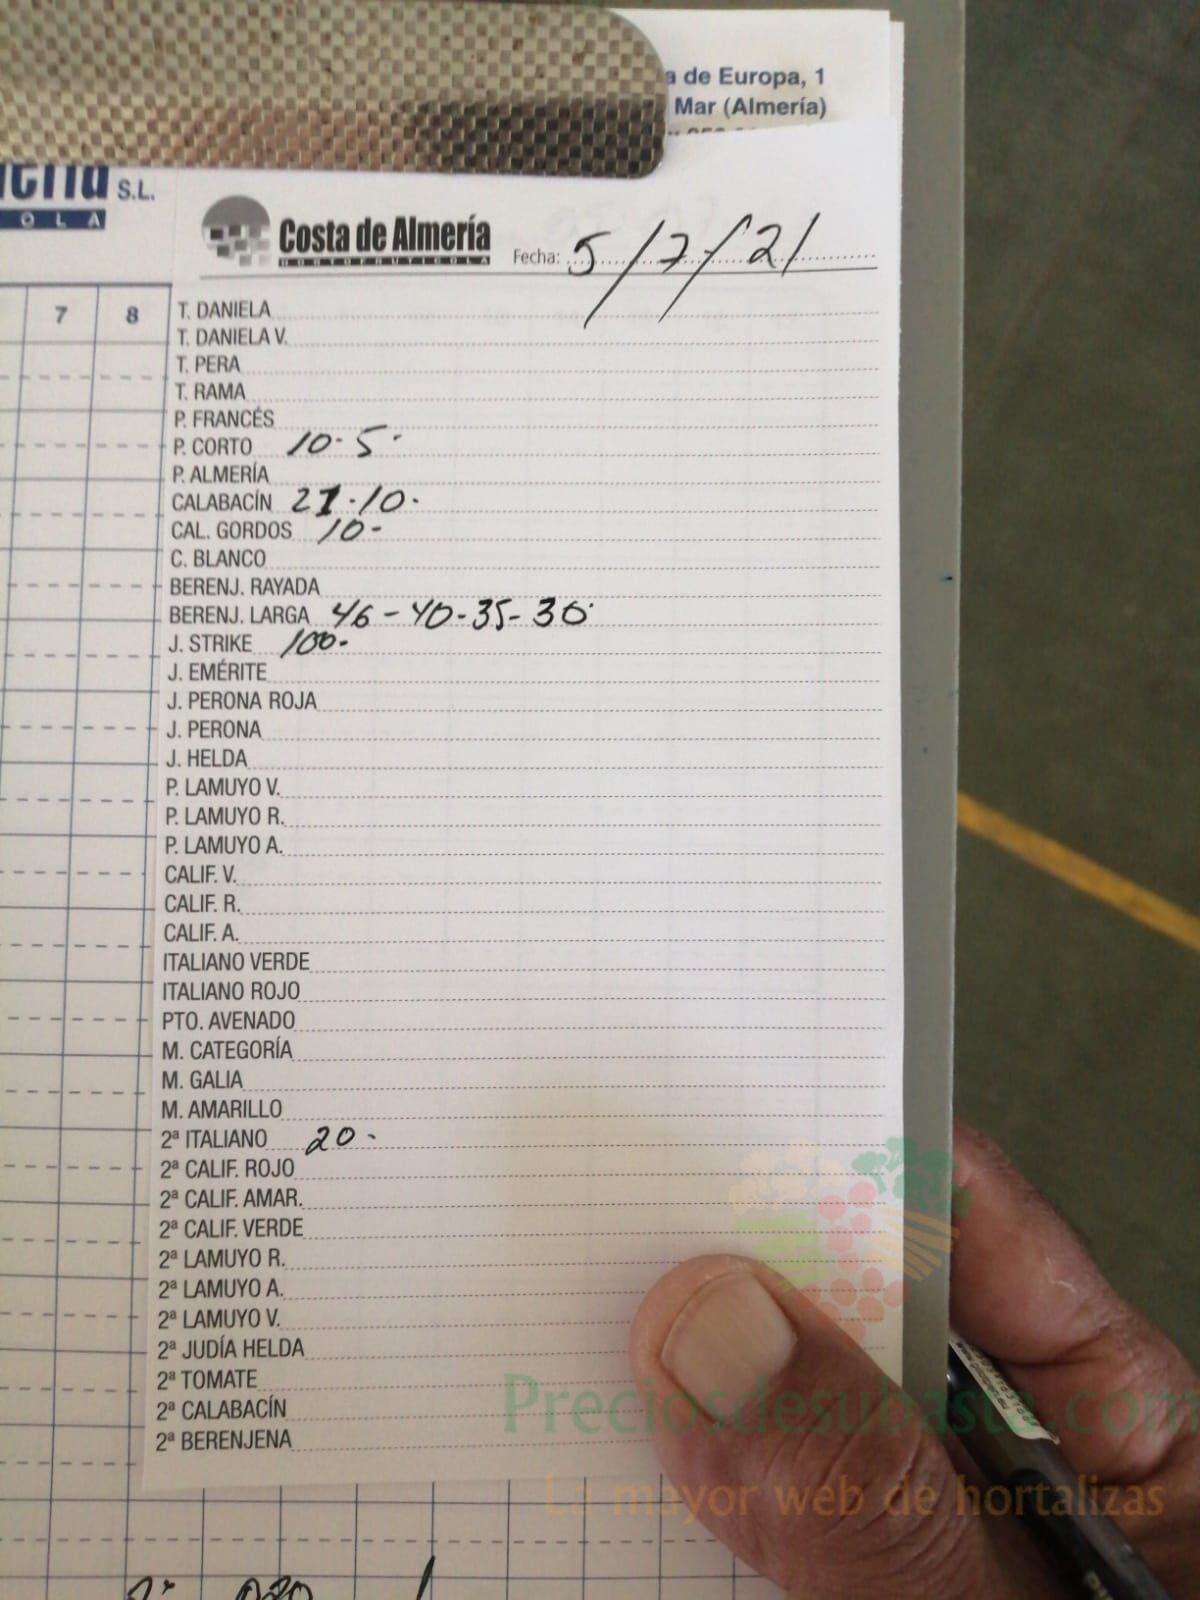 a de Europa, 1
Mar (Almería)
S.L.
O L A
Costa de Almería
HORTOFRUTICOLA
Fecha: 5/7/21
7 8
T. DANIELA
T. DANIELA V.
T. PERA
T. RAMA
P. FRANCÉS
P. CORTO 10-5-
P. ALMERÍA
CALABACÍN 21-10-
CAL. GORDOS 10-
C. BLANCO
BERENJ. RAYADA
BERENJ. LARGA 46-40-35-30-
J. STRIKE 100-
J. EMÉRITE
J. PERONA ROJA
J. PERONA
J. HELDA
P. LAMUYO V.
P. LAMUYO R.
P. LAMUYO A.
CALIF. V.
CALIF. R.
CALIF. A.
ITALIANO VERDE
ITALIANO ROJO
PTO. AVENADO
M. CATEGORÍA
M. GALIA
M. AMARILLO
2ª ITALIANO 20-
2ª CALIF. ROJO
2ª CALIF. AMAR.
2ª CALIF. VERDE
2ª LAMUYO R.
2ª LAMUYO A.
2ª LAMUYO V.
2ª JUDÍA HELDA
2ª TOMATE
2ª CALABACÍN
2ª BERENJENA
Preciosdesubasta.com
La mayor web de hortalizas